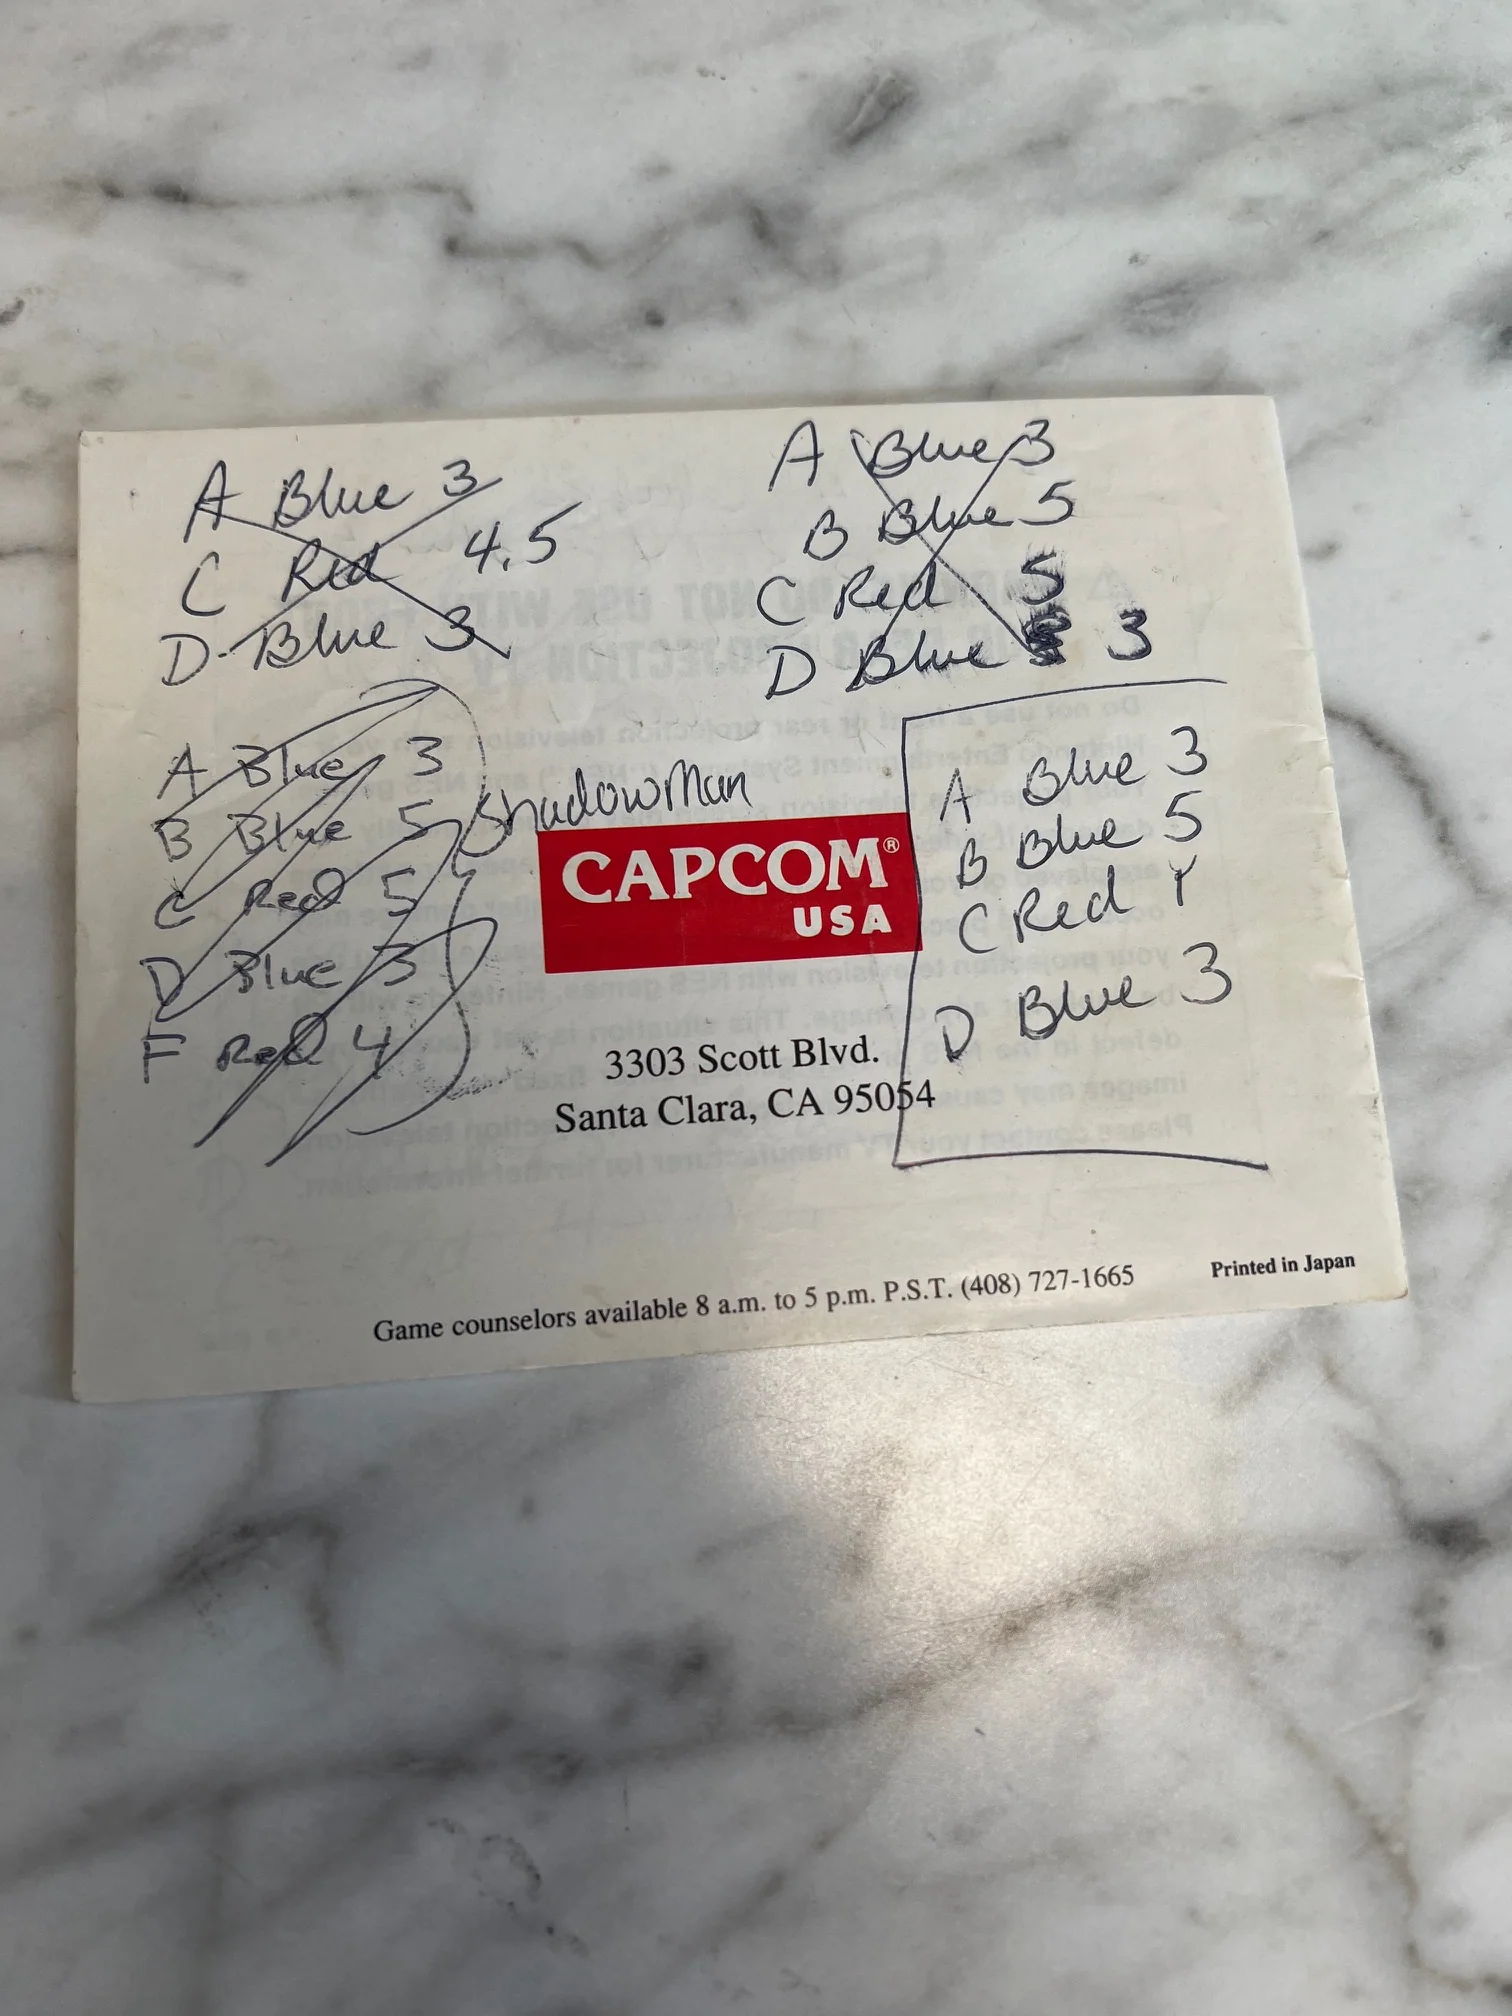 A Blue 3
C Red 4,5
D Blue 3
A Blue 3
B Blue 5
C Red 5
D Blue 3
A Blue 3
B Blue 5
C Red 5
D Blue 3
F Red 4
ShadowMan
A Blue 3
B Blue 5
C Red
D Blue 3
CAPCOM®
USA
3303 Scott Blvd.
Santa Clara, CA 95054
Game counselors available 8 a.m. to 5 p.m. P.S.T. (408) 727-1665
Printed in Japan